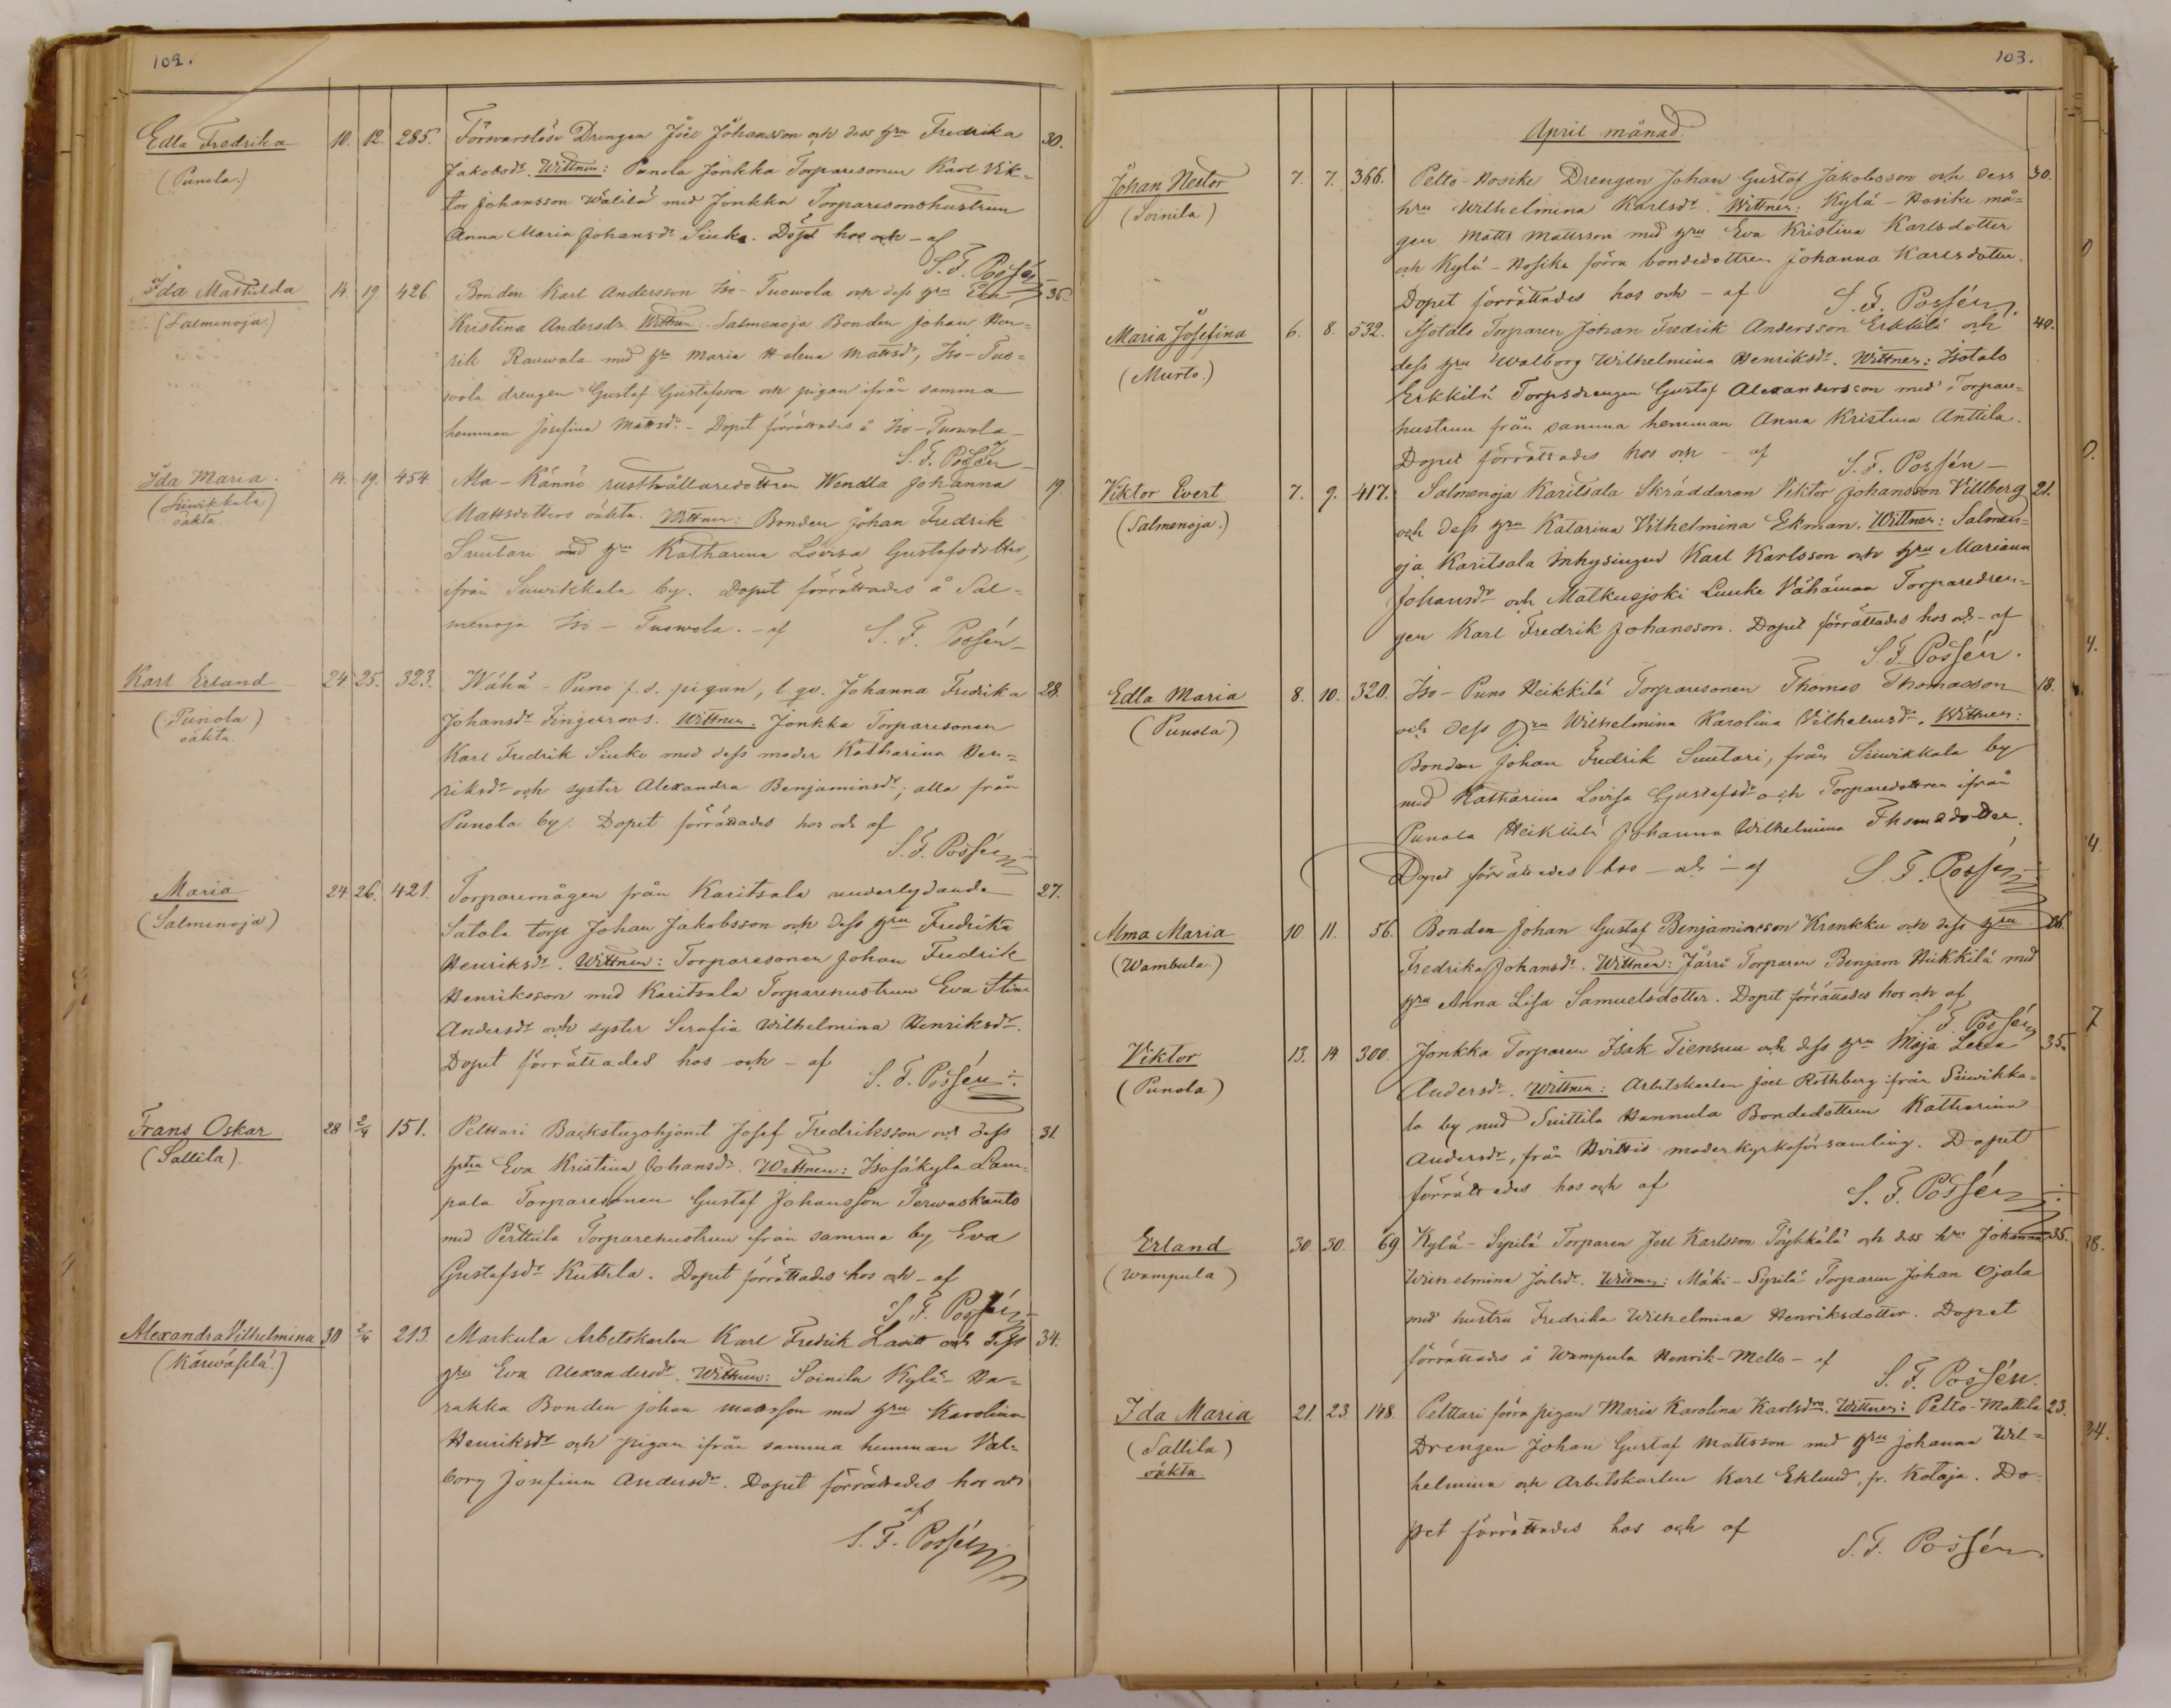 102.
Edla Fredrika 10. 12. 285. Förswarslöse Drengen Joel Johansson och dess hru Fredrika 30.
(Punola.) Jakobsdr. Wittnen: Punola Jonkka Torparesonen Karl Vik=
tor Johansson Wälilä med Jonkka Torparesonshustrun
Anna Maria Johansdr Siuko. Döpt hos och – af
S. F. Possén
Ida Mathilda 14. 19. 426. Bonden Karl Andersson Iso-Tuowola och dess hru Eva 36.
(Salmenoja.) Kristina Andersdr. Wittnen: Salmenoja Bonden Johan Hen=
rik Rauwola med hru Maria Helena Mattsdr, Iso-Tuo=
wola drengen Gustaf Gustafsson och pigan ifrån samma
hemman Josefina Mattsdr. – Dopet förrättades å Iso-Tuowola
af
S. F. Possén
Ida Maria. 14. 19. 454. Ala-Kännö rusthållaredottren Wendla Johanna 19.
(Siuvikkala) Mattsdotters oäkta. Wittnen: Bonden Johan Fredrik
oäkta. Suutari med hru Katharina Lovisa Gustafsdotter,
ifrån Siuwikkala by. Dopet förrättades å Sal=
menoja Iso-Tuowola. – af S. F. Possén –
Karl Erland 24. 25. 323. Wähä-Puno f. d. pigan, l. qv. Johanna Fredrika 28.
(Punola) Johansdr Fingerroos. Wittnen: Jonkka Torparesonen
oäkta. Karl Fredrik Siuko med dess moder Katharina Hen=
riksdr och syster Alexandra Benjaminsdr; alla från
Punola by. Dopet förrättades hos och af
S. F. Possén
Maria 24. 26. 421. Torparemågen från Karitsala underlydande 27.
(Salmenoja) Satala torp Johan Jakobsson och dess hru Fredrika
Henriksdr. Wittnen: Torparesonen Johan Fredrik
Henriksson med Karitsala Torparehustrun Eva Stina
Andersdr och syster Serafia Wilhelmina Henriksdr.
Dopet förrättades hos och – af S. F. Possén
Frans Oskar 28 2/4 151. Pelttari Backstugohjonet Josef Fredriksson och dess 31.
(Sallila). hstru Eva Kristina Johansdr. Wittnen: Isosäkylä Lam=
pala Torparesonen Gustaf Johansson Terwaskanto
med Perttula Torparehustrun från samma by Eva
Gustafsdr Kuttila. Dopet förrättades hos och – af
S. F. Possén
Alexandra Vilhelmina 30 2/4 213. Markula Arbetskarlen Karl Fredrik Lavitt och dess 34.
(Kärwäsilä.) hru Eva Alexandersdr. Wittnen: Soinila Kylä-Ha=
rakka Bonden Johan Mattsson med hru Karolina
Henriksdr och pigan ifrån samma hemman Val=
borg Josefina Andersdr. Dopet förrättades hos och
af
S. F. Possén
103.
April månad.
Johan Nestor 7. 7. 366. Pelto-Hosike Drengen Johan Gustaf Jakobsson och dess 30.
(Soinila) hru Wilhelmina Karlsdr. Wittnen: Kylä-Hosike må=
gen Matts Mattsson med hru Eva Kristina Karlsdotter
och Kylä-Hosike förra bondedottren Johanna Karlsdotter.
Dopet förrättades hos och – af S. F. Possén
Maria Josefina 6. 8. 532. Isotalo Torparen Johan Fredrik Andersson Erkkilä och 40.
(Murto.) dess hru Walborg Wilhelmina Henriksdr. Wittnen: Isotalo
Erkkilä Torpsdrengen Gustaf Alexandersson med Torpare=
hustrun från samma hemman Anna Kristina Anttila.
Dopet förrättades hos och – af S. F. Possén –
Viktor Evert 7. 9. 417. Salmenoja Karitsala Skräddaren Viktor Johansson Villberg 21.
(Salmenoja.) och dess hru Katarina Vilhelmina Ekman. Wittnen: Salmen=
oja Karitsala Inhysingen Karl Karlsson och hru Mariana
Johansdr och Matkusjoki Luuke Vähämaa Torparedren=
gen Karl Fredrik Johansson. Dopet förrättades hos och – af
S. F. Possén.
Edla Maria 8. 10. 320. Iso-Puno Heikkilä Torparesonen Thomas Thomasson 18.
(Punola) och dess hru Wilhelmina Karolina Vilhelmsdr. Wittnen:
Bonden Johan Fredrik Suutari, från Siuwikkala by
med Katharina Lovisa Gustafsdr och Torparedottren ifrån
Punola Heikkilä Johanna Wilhelmina Thomasdotter.
Dopet förrättades hos – och – af S. F. Possén
Alma Maria 10. 11. 56. Bonden Johan Gustaf Benjaminsson Krenkku och dess hru 26.
(Wambula.) Fredrika Johansdr. Wittnen: Järri Torparen Benjam Heikkilä med
hru Anna Lisa Samuelsdotter. Dopet förrättades hos och af
S. F. Possén
Viktor 13. 14. 300. Jonkka Torparen Isak Tiensuu och dess hru Maja Lena 35.
(Punola) Andersdr. Wittnen: Arbetskarlen Joel Rothberg från Siuwikka=
la by med Suittila Hannula Bondedottren Katharina
Andersdr, från Hvittis moderkyrkoförsamling. Dopet
förrättades hos och af S. F. Possén
Erland 30. 30. 69 Kylä-Sipilä Torparen Joel Karlsson Pöyhkälä och dess hru Johanna 35.
(Wampula) Wilhelmina Joelsdr. Wittnen: Mäki-Sipilä Torparen Johan Ojala
med hustru Fredrika Wilhelmina Henriksdotter. Dopet
förrättades å Wampula Henrik-Mello – af
S. F. Possén.
Ida Maria 21. 23 148. Pelttari förra pigan Maria Karolina Karlsdrs. Wittnen: Pelto-Mattila 23.
(Sallila) Drengen Johan Gustaf Mattsson med hru Johanna Wil=
oäkta. helmina och Arbetskarlen Karl Eklund, fr. Kotoja. Do=
pet förrättades hos och af
S. F. Possén